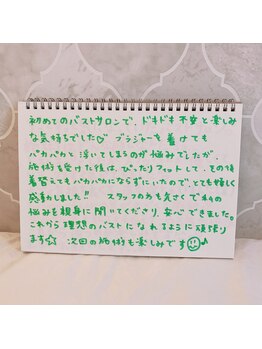 初めてのバストサロンで、ドキドキ不安と楽しみ
な気持ちでした♡ ブラジャーを着けても
パカパカと浮いてしまうのが悩みでしたが、
施術を受けた後は、ぴったりフィットして、その後
着替えてもパカパカにならずにいたので、とても嬉しく
感動しました!! スタッフの方も気さくで私の
悩みを親身に聞いてくださり、安心できました。
これから理想のバストになれるように頑張り
ます☆ 次回の施術も楽しみです☺♪